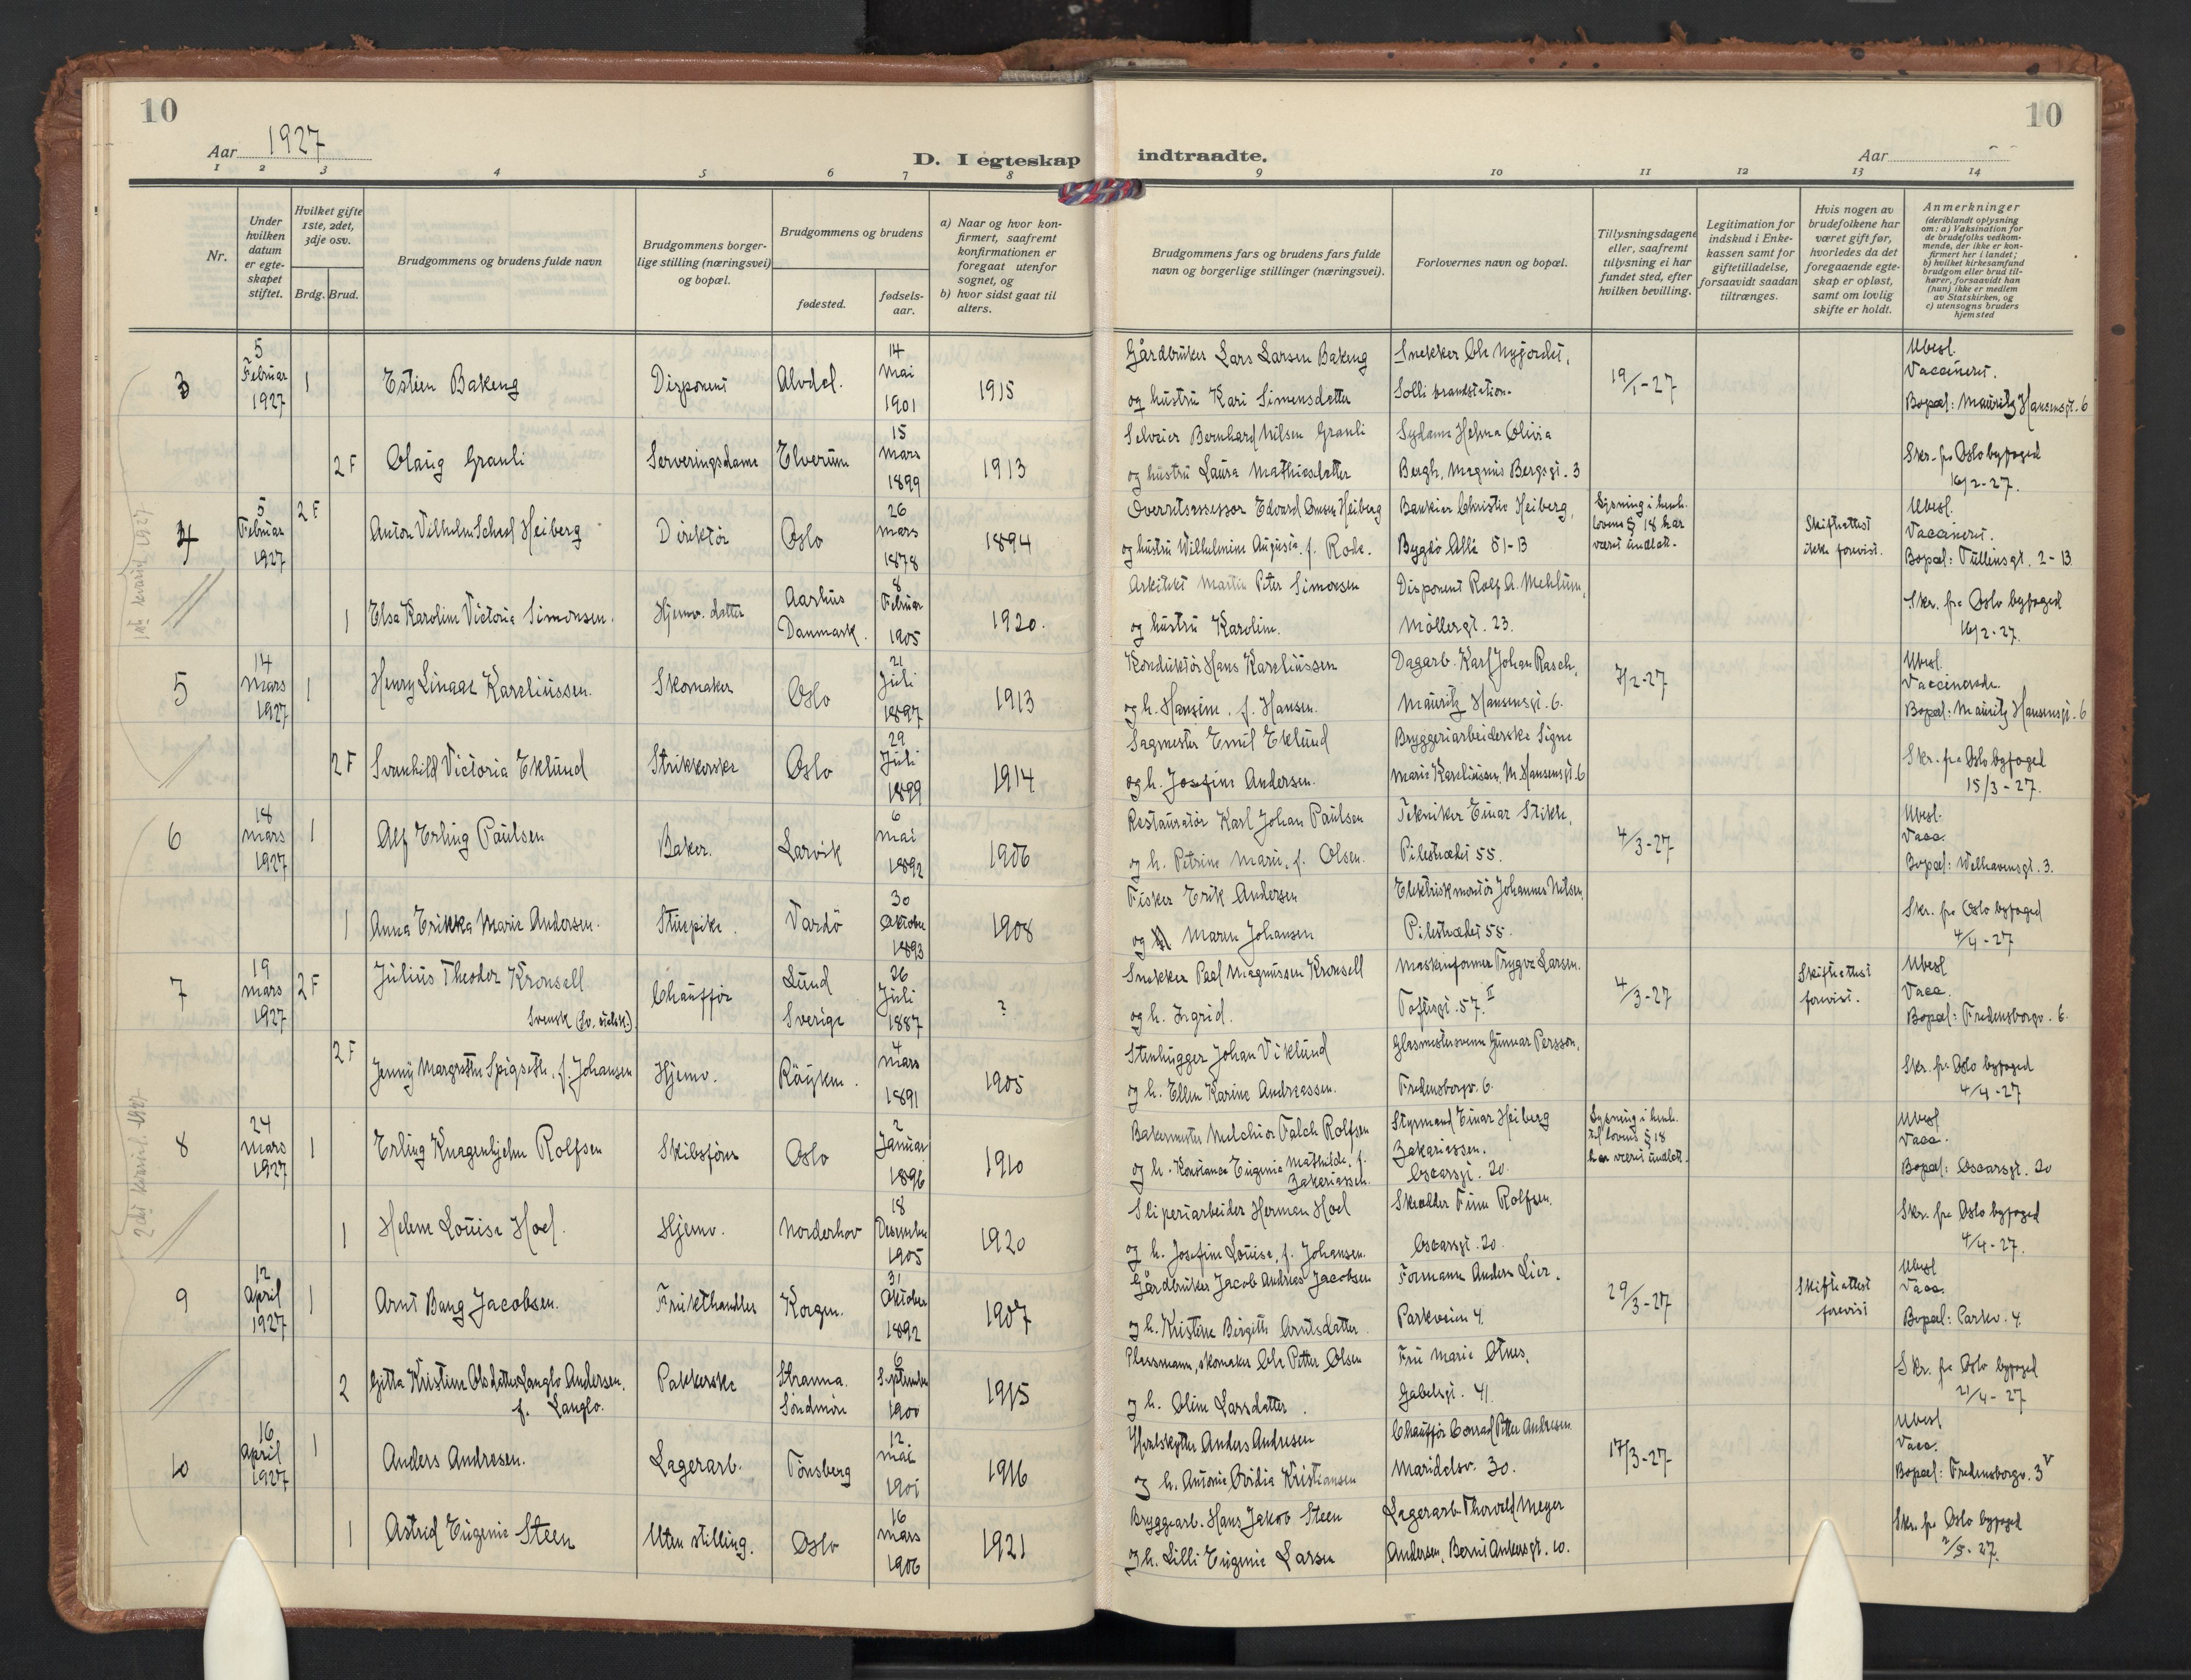 10
10
Aar 1927
D. I egteskap indtraadte.
Aar
1 2 3 4 5 6 7 8 9 10 11 12 13 14
Nr.
Under hvilken datum er egteskapet stiftet.
Hvilket gifte 1ste, 2det, 3dje osv.
Brdg. Brud.
Brudgommens og brudens fulde navn
Brudgommens borgerlige stilling (næringsvei) og bopæl.
Brudgommens og brudens
fødested.
fødselsaar.
a) Naar og hvor konfirmert, saafremt konfirmationen er foregaat utenfor sognet, og
b) hvor sidst gaat til alters.
Brudgommens fars og brudens fars fulde navn og borgerlige stillinger (næringsvei).
Forlovernes navn og bopæl.
Tillysningsdagene eller, saafremt tillysning ei har fundet sted, efter hvilken bevilling.
Legitimation for indskud i Enkekassen samt for giftetilladelse, forsaavidt saadan tiltrænges.
Hvis nogen av brudefolkene har været gift før, hvorledes da det foregaaende egteskap er opløst, samt om lovlig skifte er holdt.
Anmerkninger (deriblandt oplysning om: a) Vaksination for de brudefolks vedkommende, der ikke er konfirmert her i landet; b) hvilket kirkesamfund brudgom eller brud tilhører, forsaavidt han (hun) ikke er medlem av Statskirken, og c) utensogns bruders hjemsted
3 5 Februar 1927 1 Estien Bakeng Disponent Alvdal. 14 Mai 1901 1915
Gårdbruker Lars Larsen Bakeng og hustru Kari Simensdatter
Snekker Ole Nyjordet, Solli brandstation.
19/1-27
Ubesl. Vaccinert. Bopæl: Mauritz Hansensgt. 6
2 F Olaug Granli Serveringsdame Elverum 15 Mars 1899 1913
Selveier Bernhard Nilsen Granli og hustru Laura Mathiasdatter
Sydame Helma Olivia Bergh, Magnus Bergsgt. 3
Skr. fra Oslo byfoged 16/2-27.
4 5 Februar 1927 2 F Anton Vilhelm Scheel Heiberg Direktör Oslo 26 Mars 1878 1894
Overretsassessor Edvard Omsen Heiberg og hustru Wilhelmine Augusta f. Rode.
Bankier Christie Heiberg, Bygdö Allé 51-13
Lysning i henh. lovens § 18 har været undlatt.
Skifteattest ikke forevist.
Ubesl. Vaccinert. Bopæl: Tullinsgt. 2-13
1 Elsa Karoline Victoria Simonsen. Hjemv. datter Aarhus Danmark. 8 Februar 1905 1920.
Arkitekt Martin Peter Simonsen og hustru Karoline.
Disponent Rolf A. Mehlum, Møllergt. 23.
Skr. fra Oslo byfoged 16/2-27.
1ste kvartal 1927
5 14 Mars 1927 1 Henry Linaae Kareliussen. Skomaker Oslo 21 Juli 1897 1913
Konduktör Hans Kareliussen og h. Hansine, f. Hansen.
Dagarb. Karl Johan Rasch, Mauritz Hansensgt. 6.
7/2-27
Ubesl. Vaccinerade. Bopæl: Mauritz Hansensgt. 6
2 F Svanhild Victoria Eklund Strikkerske Oslo 29 Juli 1899 1914
Sagmester Emil Eklund og h. Josefine Andersen.
Bryggeriarbeiderske Signe Marie Kareliussen, M. Hansensgt. 6
Skr. fra Oslo byfoged 15/3-27.
6 18 Mars 1927 1 Alf Erling Paulsen Baker. Larvik 6 Mai 1892 1906
Restauratör Karl Johan Paulsen og h. Petrine Marie, f. Olsen.
Tekniker Einar Stikle, Pilestrædet 55.
4/3-27
Ubesl. Vacc. Bopæl: Welhavensgt. 3.
1 Anna Erikka Marie Andersen. Stuepike. Vardö 30 Oktober 1893 1908
Fisker Erik Andersen og Maren Johansen
Elektriskmontör Johannes Nilsen, Pilestrædet 55.
Skr. fra Oslo byfoged 4/4-27
7 19 Mars 1927 2 F Julius Theodor Kronsell Svensk (Sv. Chaufför Lund Sverige 26 Juli 1887 ?
Snekker Paul Magnussen Kronsell og h. Ingrid.
Maskinformer Trygve Larsen, Toftesgt. 57 II
4/3-27
Skifteattest forevist.
Ubesl Vacc. Bopæl: Fredensborgv. 6.
2 F Jenny Margrethe Spigseth, f. Johansen Hjemv. Röyken. 4 Mars 1891 1905
Stenhugger Johan Viklund og h. Ellen Karine Andreassen.
Glasmestersvenn Gunnar Persson, Fredensborgv. 6.
Skr. fra Oslo byfoged 4/4-27
8 24 Mars 1927 1 Erling Knagenhjelm Rolfsen Skibsförer Oslo 2 Januar 1896 1910
Bakermester Melchior Falch Rolfsen og h. Konstance Eugenie Mathilde, f. Zakariassen.
Styrmand Einar Heiberg Zakariassen. Oscarsgt. 20.
Lysning i henh. til lovens § 18 har været undlatt.
Ubesl Vacc. Bopæl: Oscarsgt. 20
1 Helene Louise Hoel. Hjemv. Norderhov 18 Desember 1905 1920
Sliperiarbeider Herman Hoel og h. Josefine Louise, f. Johansen.
Skrædder Finn Rolfsen. Oscarsgt. 20.
Skr. fra Oslo byfoged 4/4-27.
2det kvartal 1927
9 12 April 1927 1 Arnt Bang Jacobsen. Frukthandler Korgen. 31 Oktober 1892 1907
Gårdbruker Jacob Andreas Jacobsen og h. Kristine Birgitte Arntsdatter
Formann Anders Lier. Parkveien 4.
29/3-27
Skifteattest forevist
Ubesl Vacc. Bopæl: Parkv. 4.
2 Gitta Kristine Olsdatter Langlo Andersen. f. Langlo. Pakkerske Stranna. Söndmöre 6 September 1900 1915
Plassmann, skomaker Ole Petter Olsen og h. Oline Larsdatter.
Fru Marie Olnes, Gabelsgt. 41
Skr. fra Oslo byfoged 21/4-27
10 16 April 1927 1 Anders Andresen. Lagerarb. Tönsberg 12 Mai 1901 1916
Hvalskytter Anders Andresen og h. Antonie Ovidia Kristiansen
Chaufför Conrad Petter Andresen Maridalsv. 30.
17/3-27
Ubesl Vacc. Bopæl: Fredensborgv. 3 V
1 Astrid Eugenie Steen Uten stilling. Oslo 16 Mars 1906 1921
Bryggearb. Hans Jakob Steen og h. Lilli Eugenie Larsen
Lagerarb. Thorvald Meyer Andersen, Bernt Ankersgt. 10.
Skr. fra Oslo byfoged 2/5-27.